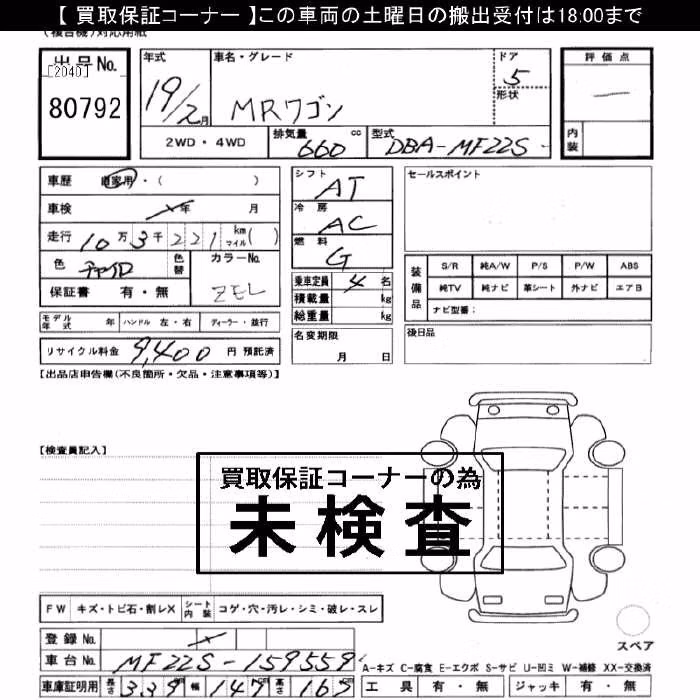 【 買取保証コーナー 】この車両の土曜日の搬出受付は18:00まで
(複合機)対応用紙
出品No.
[2040]
80792
年式
19/2月
車名・グレード
MRワゴン
ドア
5
形状
評価点
一
内装
2WD・4WD
排気量 660 cc
型式 DBA-MF22S-
車歴 自家用・( )
車検 年 月
走行 10万3千221 km マイル( )
色
色替
カラーNo.
ZEL
保証書 有・無
シフト
AT
冷房
AC
燃料
G
乗車定員 4 名
積載量 kg
総重量 kg
セールスポイント
装備品
S/R 純A/W P/S P/W ABS
純TV 純ナビ 革シート 外ナビ エアB
ナビ型番:
モデル年式 年 ハンドル 左・右 ディーラー・並行
リサイクル料金 9,400 円 預託済
名変期限
月 日
後日品
【出品店申告欄(不良箇所・欠品・注意事項等)】
【検査員記入】
買取保証コーナーの為
未検査
FW キズ・トビ石・割レX シート内装 コゲ・穴・汚レ・シミ・破レ・スレ
登録No.
車台No. MF22S-159559
スペア
A-キズ C-腐食 E-エクボ S-サビ U-凹ミ W-補修 XX-交換済
車庫証明用 長さ 339 cm 幅 147 cm 高さ 163
工具 有・無 ジャッキ 有・無